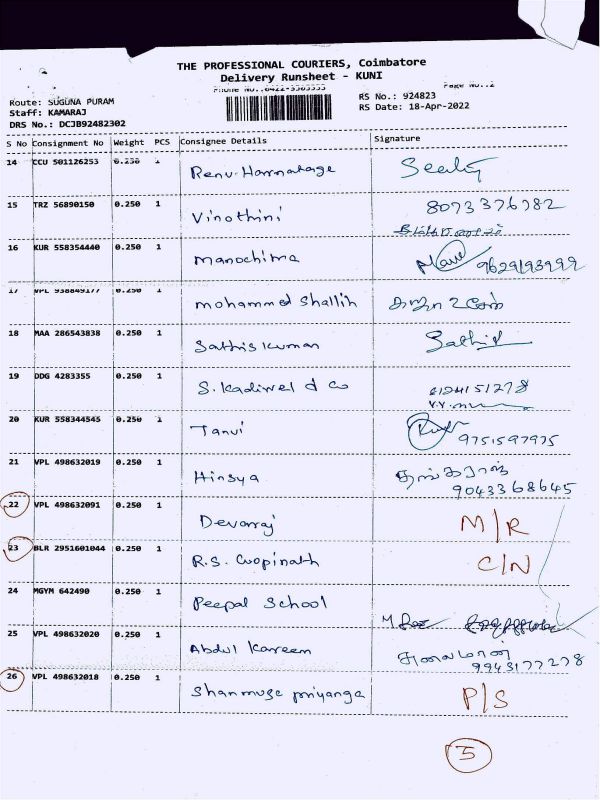 THE PROFESSIONAL COURIERS, Coimbatore
Delivery Runsheet - KUNI
Page No.:2
Phone No.:0422-3503555
Route: SUGUNA PURAM
RS No.: 924823
Staff: KAMARAJ
RS Date: 18-Apr-2022
DRS No.: DCJB92482302
S No Consignment No Weight PCS Consignee Details Signature
14 CCU 501126253 0.250 1 Renu
15 TRZ 56890150 0.250 1 Vinothini 8073376782
16 KUR 558354440 0.250 1 Manochima 9629193999
17 VPL 938849177 0.250 1 mohammed Shallih
18 MAA 286543838 0.250 1 Sathis kumar Sathis
19 DDG 4283355 0.250 1 S. Kadirvel d Co
20 KUR 558344545 0.250 1 Tanvi 9751597975
21 VPL 498632019 0.250 1 Hinsya தங்கராஜ்
9043368645
22 VPL 498632091 0.250 1 Devarraj M/R
23 BLR 2951601044 0.250 1 R.S. Gopinath C/N
24 MGYM 642490 0.250 1 Peepal School
25 VPL 498632020 0.250 1 Abdul Kareem
9943177278
26 VPL 498632018 0.250 1 Shanmuge priyanga P/S
5